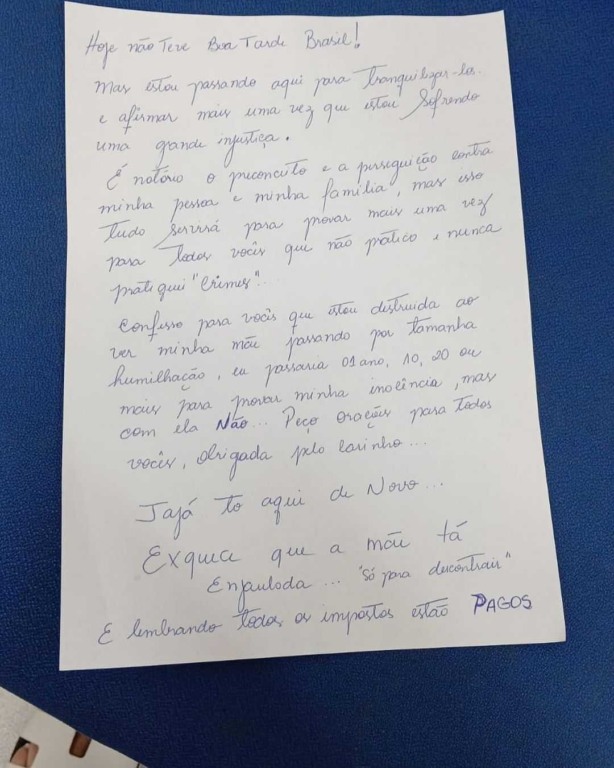 Hoje não Teve Boa Tarde Brasil!
Mas estou passando aqui para tranquilizar-los
e afirmar mais uma vez que estou Sofrendo
uma grande injustiça.
É notório o preconceito e a perseguição contra
minha pessoa e minha família, mas isso
tudo servirá para provar mais uma vez
para todos vocês que não pratico e nunca
pratiquei "Crimes"...
Confesso para vocês que estou destruida ao
ver minha mãe passando por tamanha
humilhação, eu passaria 01 ano, 10, 20 ou
mais para provar minha inocência, mas
com ela Não... Peço orações para todos
vocês, obrigada pelo carinho...
Jajá to aqui de Novo...
Exquece que a mãe tá
Enjaulada... "só para descontrair"
E lembrando todos os impostos estão PAGOS